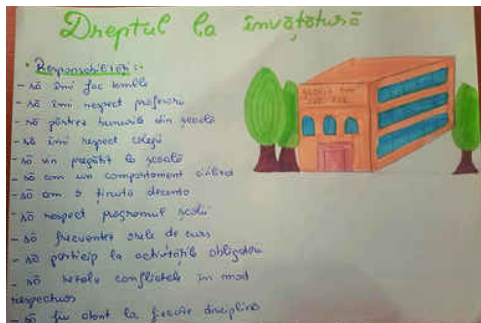 Dreptul la învățătură
• Responsabilități:
- să îmi fac temele
- să îmi respect profesorii
- să păstrez bunurile din școală
- să îmi respect colegii
- să vin pregătit la școală
- să am un comportament civilizat
- să am o ținută decentă
- să respect programul școlii
- să frecventez orele de curs
- să particip la activitățile obligatorii
- să rezolv conflictele în mod
respectuos
- să fiu atent la fiecare disciplină